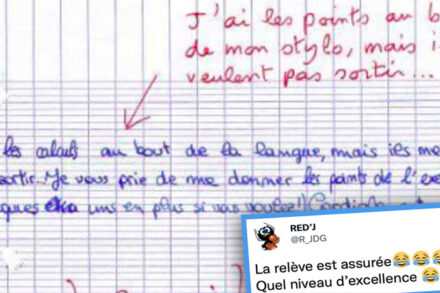 J'ai les points au b
de mon stylo, mais i
veulent pas sortir...
les calculs au bout de la langue, mais ils me
sortir... Je vous prie de me donner les points de l'exe
ques uns en plus si vous voulez!
RED'J
@R_JDG
La relève est assurée😂😂😂
Quel niveau d'excellence 😂